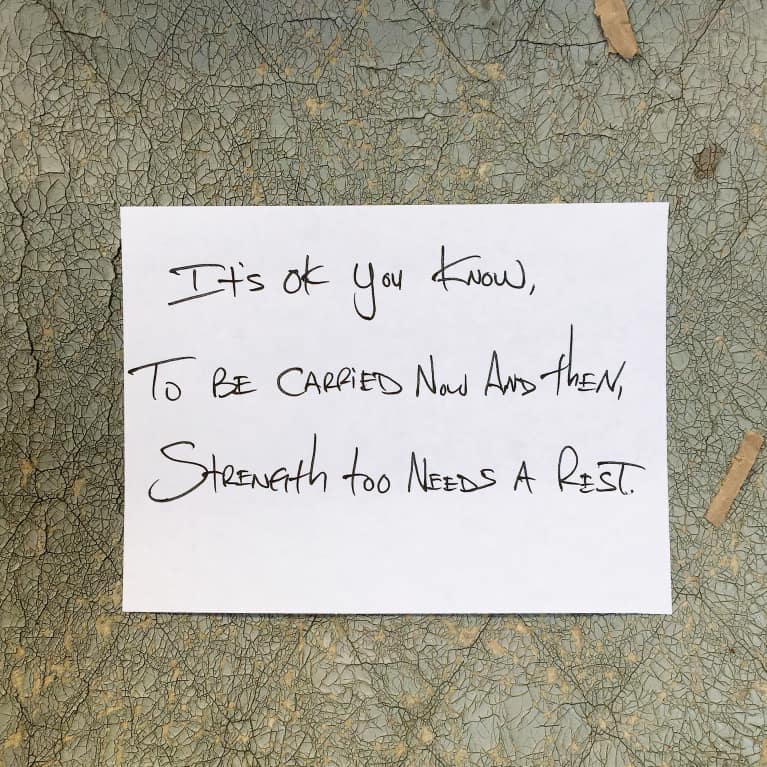 It's ok you know,
To be carried now and then,
Strength too needs a rest.